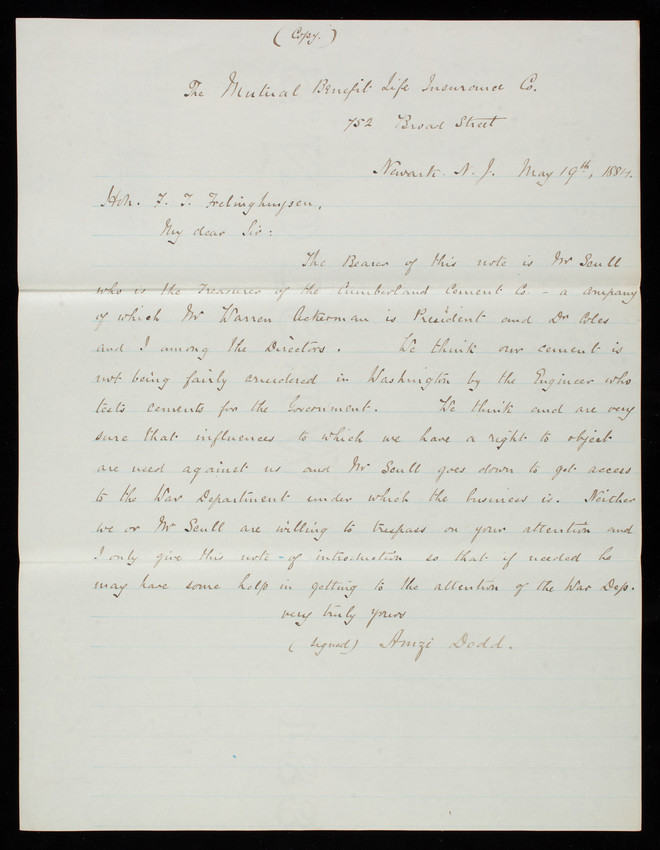 (Copy.)
The Mutual Benefit Life Insurance Co.
752 Broad Street
Newark N. J. May 19th, 1884.
Hon. F. T. Frelinghuysen,
My dear Sir:
The Bearer of this note is Mr Scull
who is the Treasurer of the Cumberland Cement Co. - a company
of which Mr Warren Ackerman is President and Dr Coles
and I among the Directors. We think our cement is
not being fairly considered in Washington by the Engineer who
tests cements for the Government. We think and are very
sure that influences to which we have a right to object
are used against us and Mr Scull goes down to get access
to the War Department under which the business is. Neither
we or Mr Scull are willing to trespass on your attention and
I only give this note - of introduction so that if needed he
may have some help in getting to the attention of the War Dep.
very truly yours
(signed) Amzi Dodd.